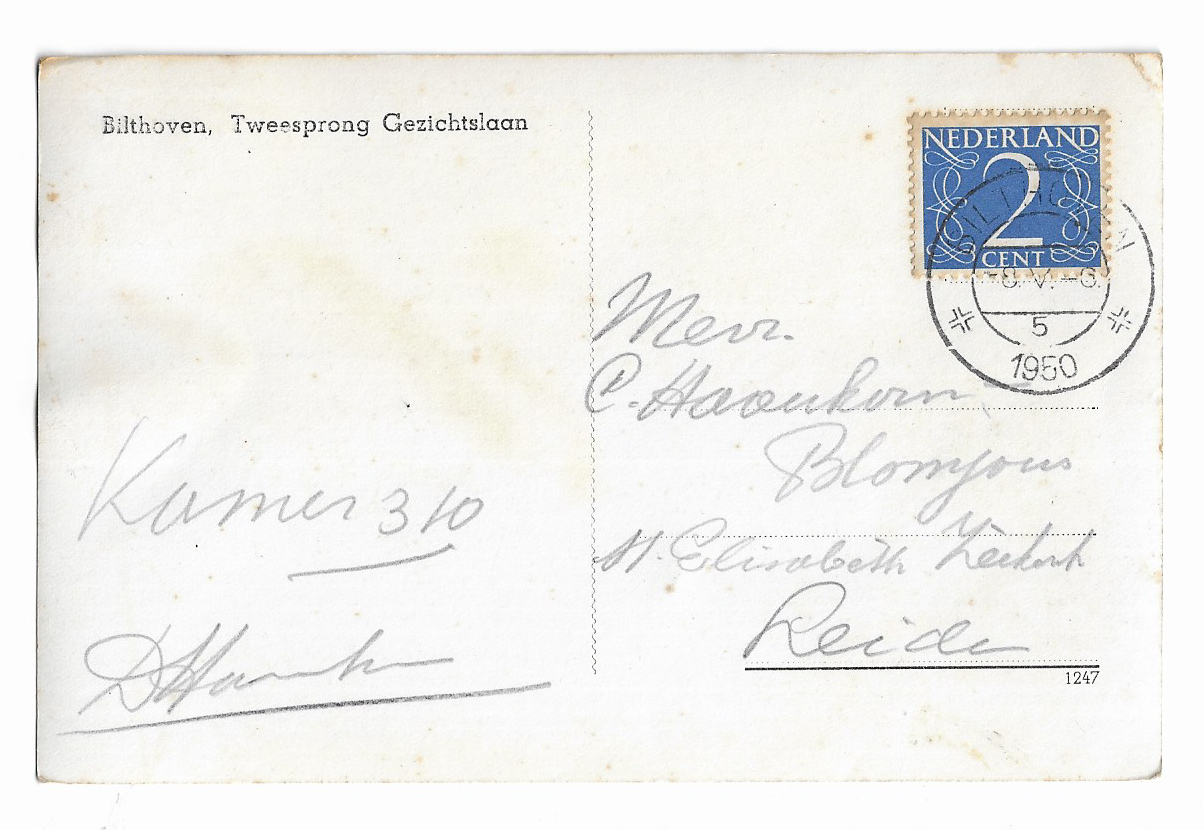 Bilthoven, Tweesprong Gezichtslaan
NEDERLAND
2
CENT
BILTHOVEN
-8.V.-6
5
1950
Mevr.
C. Haankorn
Blomjous
St. Elisabeth
Leiden
1247
Kamer 310